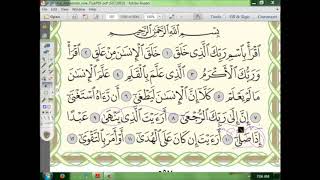 Tools Fill & Sign Comment
بِسْمِ ٱللَّهِ ٱلرَّحْمَٰنِ ٱلرَّحِيمِ
ٱقْرَأْ بِٱسْمِ رَبِّكَ ٱلَّذِى خَلَقَ ١ خَلَقَ ٱلْإِنسَٰنَ مِنْ عَلَقٍ ٢ ٱقْرَأْ
وَرَبُّكَ ٱلْأَكْرَمُ ٣ ٱلَّذِى عَلَّمَ بِٱلْقَلَمِ ٤ عَلَّمَ ٱلْإِنسَٰنَ
مَا لَمْ يَعْلَمْ ٥ كَلَّآ إِنَّ ٱلْإِنسَٰنَ لَيَطْغَىٰٓ ٦ أَن رَّءَاهُ ٱسْتَغْنَىٰٓ
٧ إِنَّ إِلَىٰ رَبِّكَ ٱلرُّجْعَىٰٓ ٨ أَرَءَيْتَ ٱلَّذِى يَنْهَىٰ ٩ عَبْدًا
إِذَا صَلَّىٰٓ ١٠ أَرَءَيْتَ إِن كَانَ عَلَى ٱلْهُدَىٰٓ ١١ أَوْ أَمَرَ بِٱلتَّقْوَىٰٓ ١٢